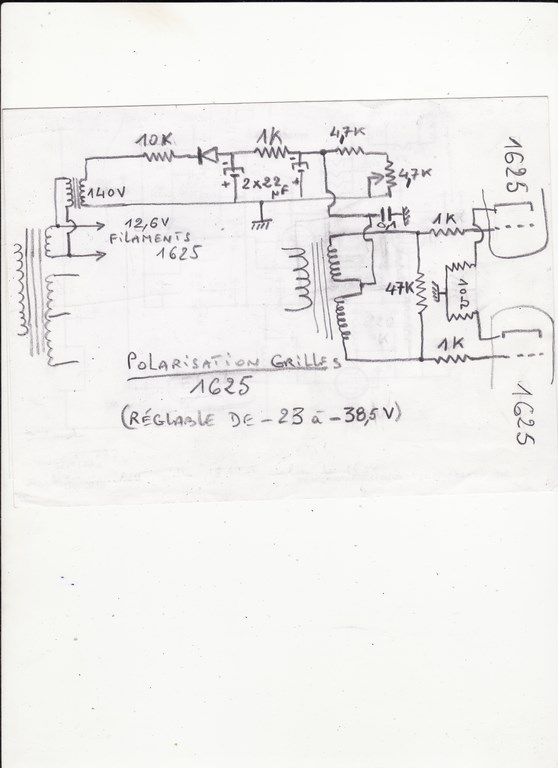 10K
1K
4,7K
4,7K
140V
+
2x22
µF
+
12,6V
FILAMENTS
1625
0,1
1K
1625
47K
10Ω
1K
1625
POLARISATION GRILLES
1625
(RÉGLABLE DE -23 à -38,5V)